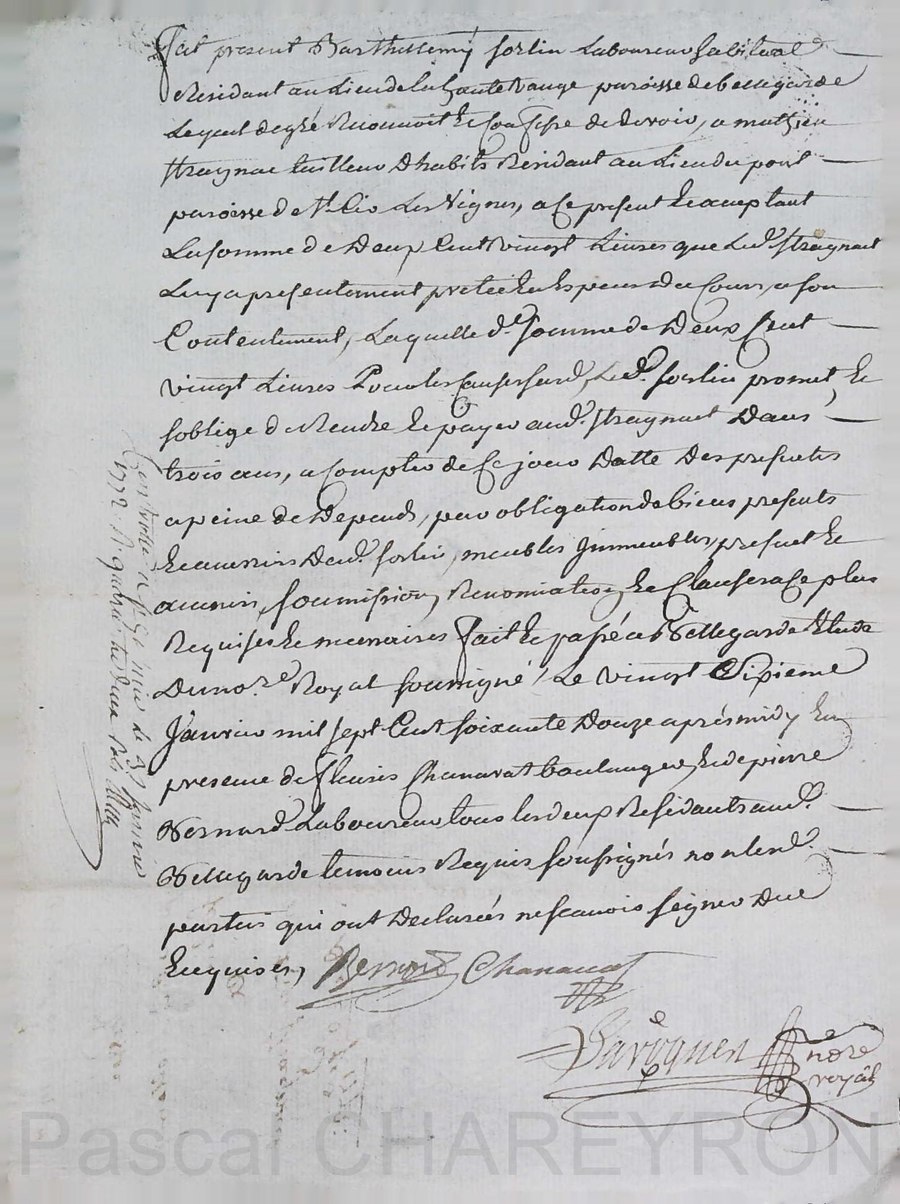 fut present Barthelemy forlin Laboureur habitant
Residant au Lieu de la haute Range paroisse de bellegarde
Lequel de gré Reconnoit Et Confesse de devoir, a mathieu
Stragnac tailleur D'habits Residant au Lieu du pont
paroisse de st Cir Les Vignes, a Ce present Et aceptant
La somme de Deux Cent vingt Livres que Led. Stragnat
Luy a presentement pretée En Especes du Cours, a son
Contentement, Laquelle de. somme de Deux Cent
vingt Livres Pour les Causes susd. Led. forlin promet Et
soblige de Rendre Et payer aud. Stragnat Dans
trois ans, a Compter de Ce jour Datte Des presentes
a peine de Depends, par obligation de biens presents
Et avenirs Dud. forlin, meubles Immeubles, present Et
avenir, soumission, Renonciation, Et Clauses a Ce plus
Requises Et necenaires fait Et passé a Bellegarde Etude
Du nore. Royal soussigné, Le vingt Sixieme
Janvier mil sept Cent soixante Douze aprés midy En
presence de fleuris Chanavat boulanger, Et de pierre
Bernard Laboureur tous les deux Residants aud.
Bellegarde temoins Requis soussignés non lesd.
parties qui ont Declarées ne scavoir signer Due
Enquises,
Bernard Chanavat
nore
royal
1772
Pascal CHAREYRON